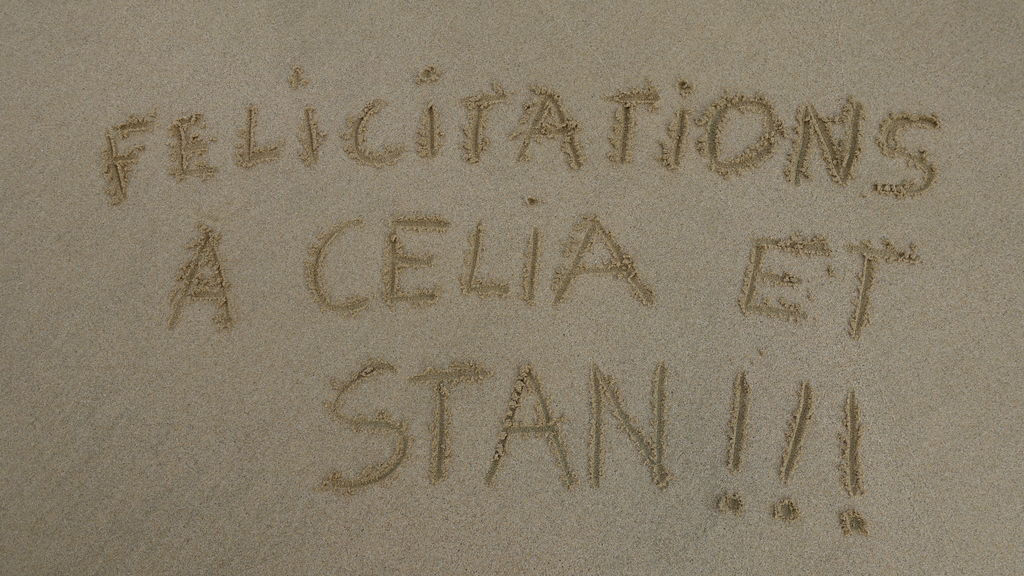 FELiCiTATiONS
A CELiA ET
STAN !!!